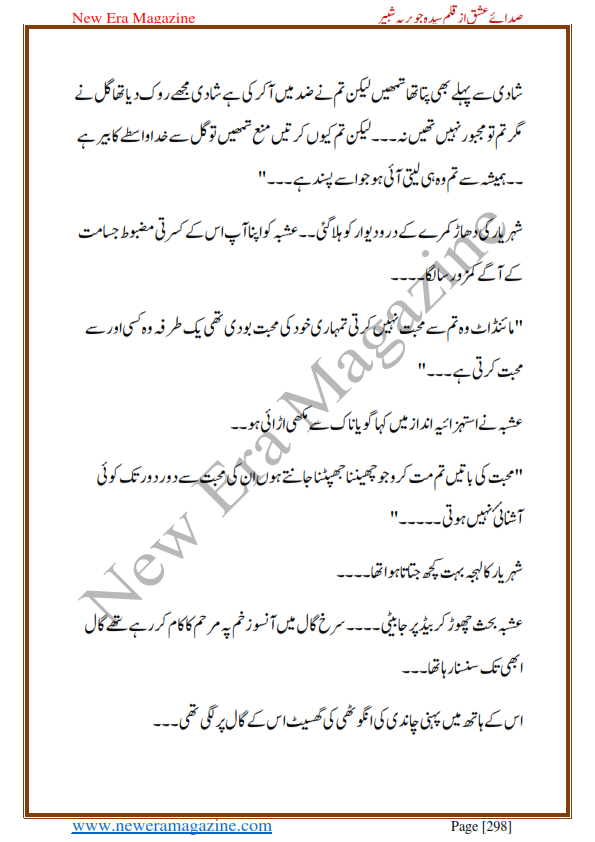 New Era Magazine صدائے عشق از قلم سیدہ جویریہ شبیر
شادی سے پہلے بھی پتا تھا تمھیں لیکن تم نے ضد میں آ کر کی ہے شادی مجھے روک دیا تھا گل نے
مگر تم تو مجبور نہیں تھیں نہ۔۔۔ لیکن تم کیوں کرتیں منع تمھیں تو گل سے خدا واسطے کا بیر ہے
۔۔ ہمیشہ سے تم وہ ہی لیتی آئی ہو جو اسے پسند ہے۔۔۔"
شہریار کی دھاڑ کمرے کے در و دیوار کو ہلا گئی۔۔ عشبہ کو اپنا آپ اس کے کسرتی مضبوط جسامت
کے آگے کمزور سا لگا۔۔۔۔
"مائنڈ اٹ وہ تم سے محبت نہیں کرتی تمہاری خود کی محبت بودی تھی یک طرفہ وہ کسی اور سے
محبت کرتی ہے۔۔۔"
عشبہ نے استہزائیہ انداز میں کہا گویا ناک سے مکھی اڑائی ہو۔۔
"محبت کی باتیں تم مت کرو جو چھیننا جھپٹنا جانتے ہوں ان کی محبت سے دور دور تک کوئی
آشنائی نہیں ہوتی۔۔۔۔۔"
شہریار کا لہجہ بہت کچھ جتاتا ہوا تھا۔۔۔۔
عشبہ بحث چھوڑ کر بیڈ پر جا بیٹی۔۔۔۔ سرخ گال میں آنسو زخم پہ مرحم کا کام کر رہے تھے گال
ابھی تک سنسنا رہا تھا۔۔۔
اس کے ہاتھ میں پہنی چاندی کی انگوٹھی کی گھسیٹ اس کے گال پر لگی تھی۔۔۔
New Era Magazine
www.neweramagazine.com Page [298]